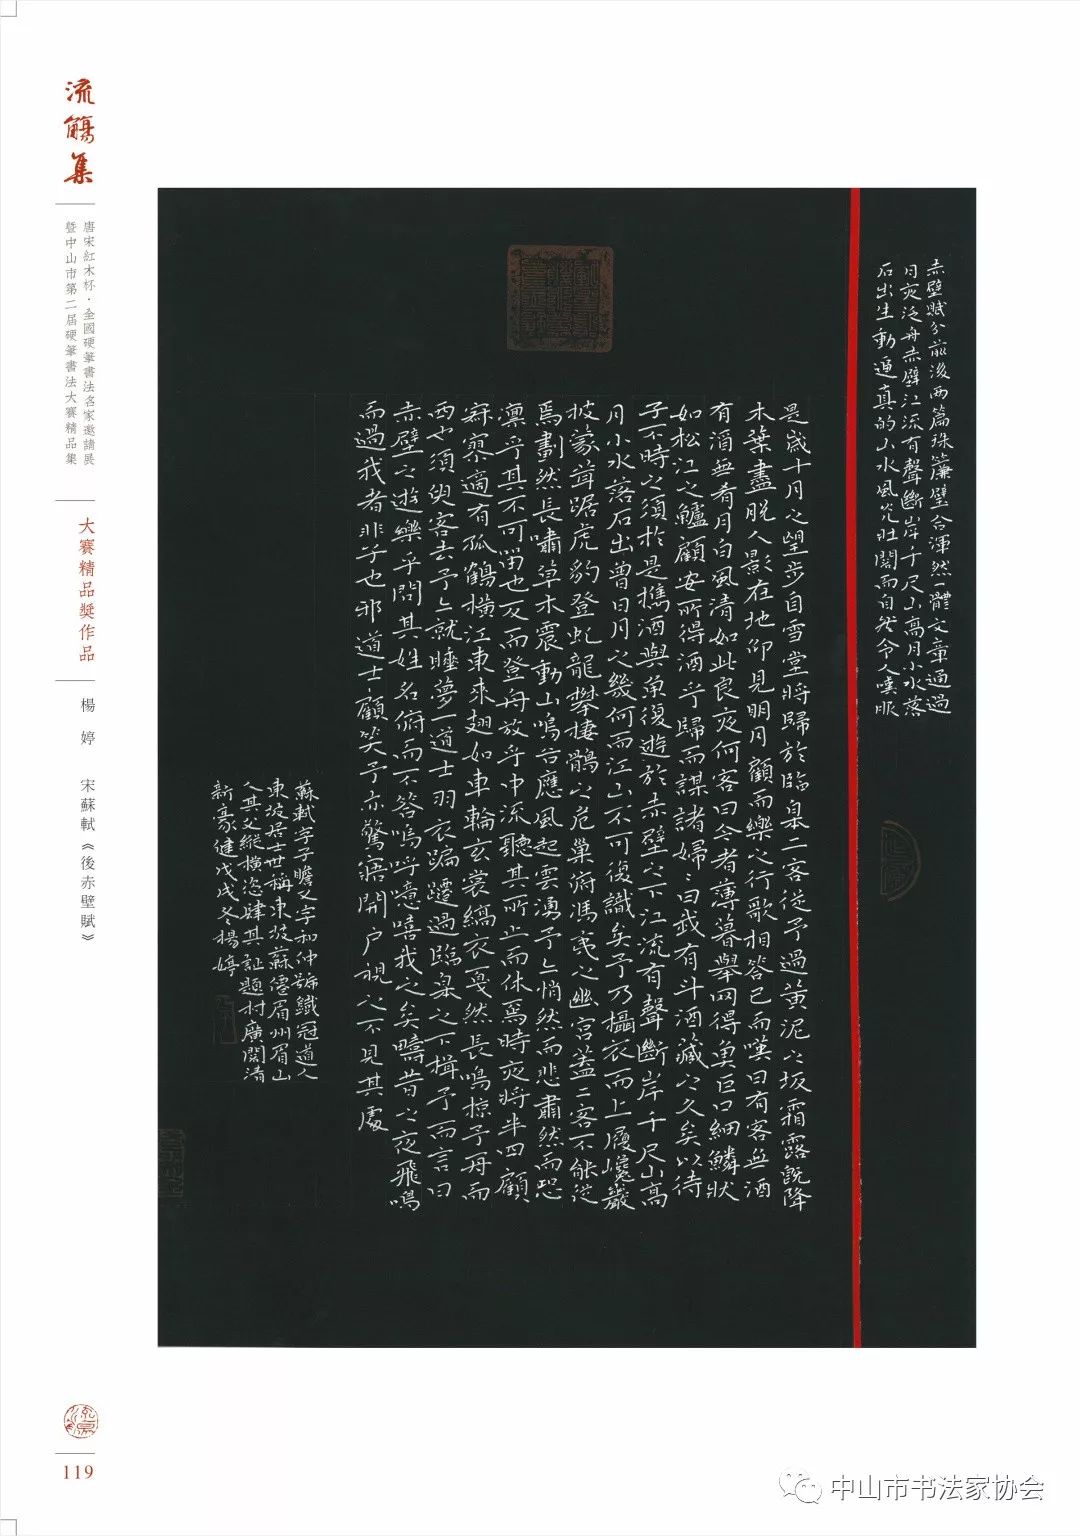 赤壁賦分前後兩篇珠簾璧合渾然一體文章通過
月夜泛舟赤壁江流有聲斷岸千尺山高月小水落
石出生動逼真的山水風光壯闊而自然令人嘆服
是歲十月之望步自雪堂將歸於臨皋二客從予過黃泥之坂霜露既降
木葉盡脫人影在地仰見明月顧而樂之行歌相答已而嘆曰有客無酒
有酒無肴月白風清如此良夜何客曰今者薄暮舉网得魚巨口細鱗狀
如松江之鱸顧安所得酒乎歸而謀諸婦々曰我有斗酒藏之久矣以待
子不時之須於是攜酒與魚復遊於赤壁之下江流有聲斷岸千尺山高
月小水落石出曾日月之幾何而江山不可復識矣予乃攝衣而上履巉巖
披蒙茸踞虎豹登虬龍攀棲鶻之危巢俯馮夷之幽宮蓋二客不能從
焉劃然長嘯草木震動山鳴谷應風起雲湧予亦悄然而悲肅然而恐
凜乎其不可留也反而登舟放乎中流聽其所止而休焉時夜將半四顧
寂寥適有孤鶴橫江東來翅如車輪玄裳縞衣戛然長鳴掠予舟而
西也須臾客去予亦就睡夢一道士羽衣蹁躚過臨皋之下揖予而言曰
赤壁之遊樂乎問其姓名俯而不答嗚呼噫嘻我知之矣疇昔之夜飛鳴
而過我者非子也邪道士顧笑予亦驚寤開戶視之不見其處
蘇軾字子瞻又字和仲號鐵冠道人
東坡居士世稱東坡蘇僊眉州眉山
人其父縱橫恣肆其詩題材廣闊清
新豪健戊戌冬楊婷
流觴集
唐宋紅木杯·全國硬筆書法名家邀請展
暨中山市第二屆硬筆書法大賽精品集
大賽精品獎作品
楊婷 宋蘇軾《後赤壁賦》
119
中山市书法家协会